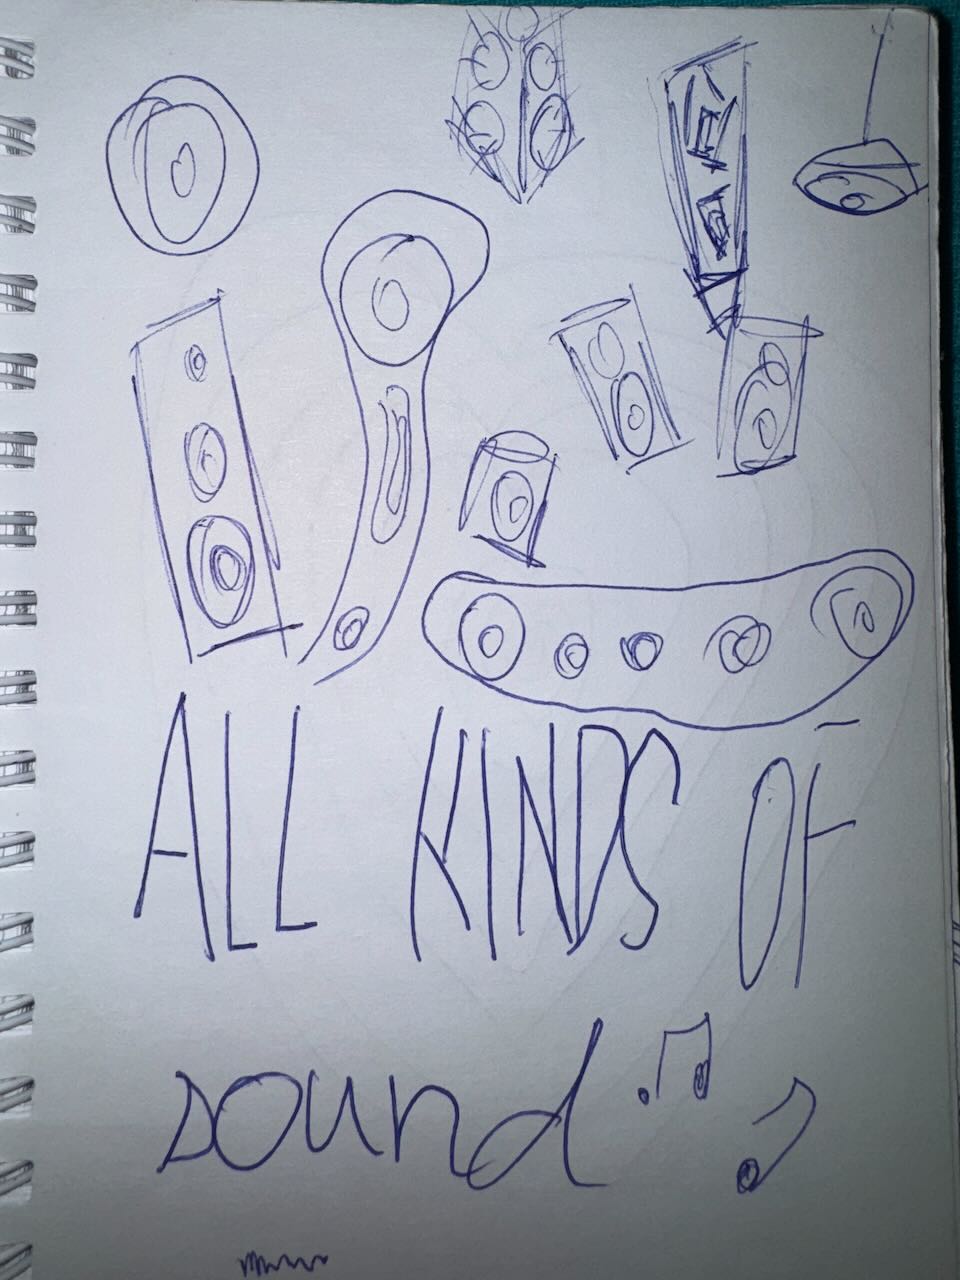 ALL KINDS OF
sound